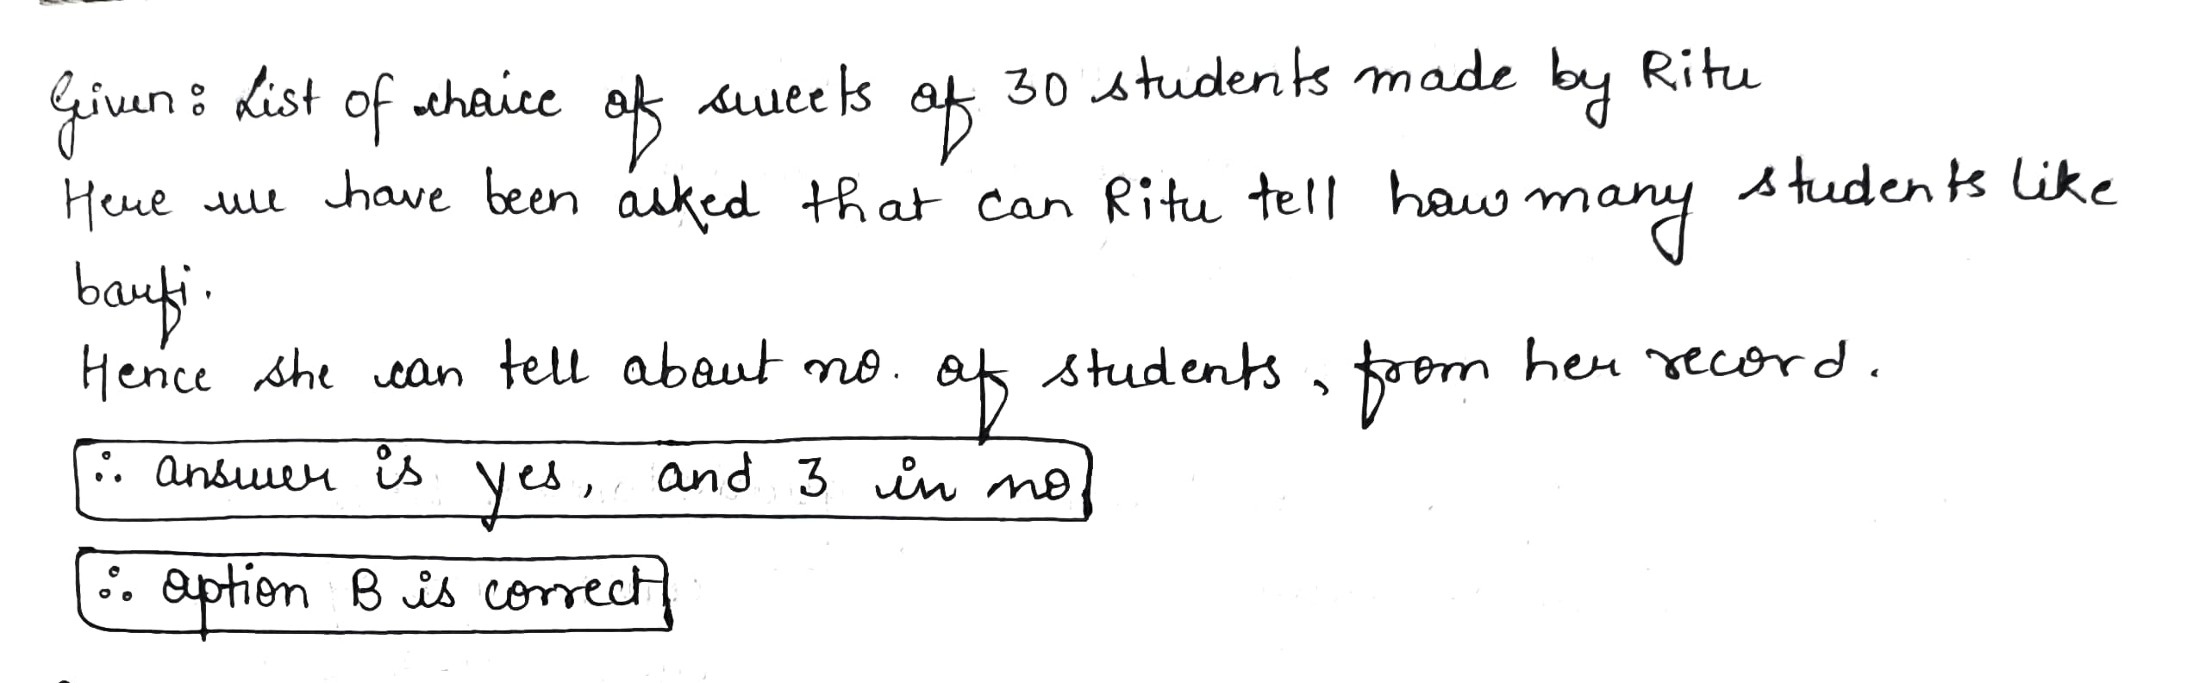 Given: List of choice of sweets of 30 students made by Ritu
Here we have been asked that can Ritu tell how many students like
barfi.
Hence she can tell about no. of students, from her record.
∴ answer is yes, and 3 in no
∴ option B is correct